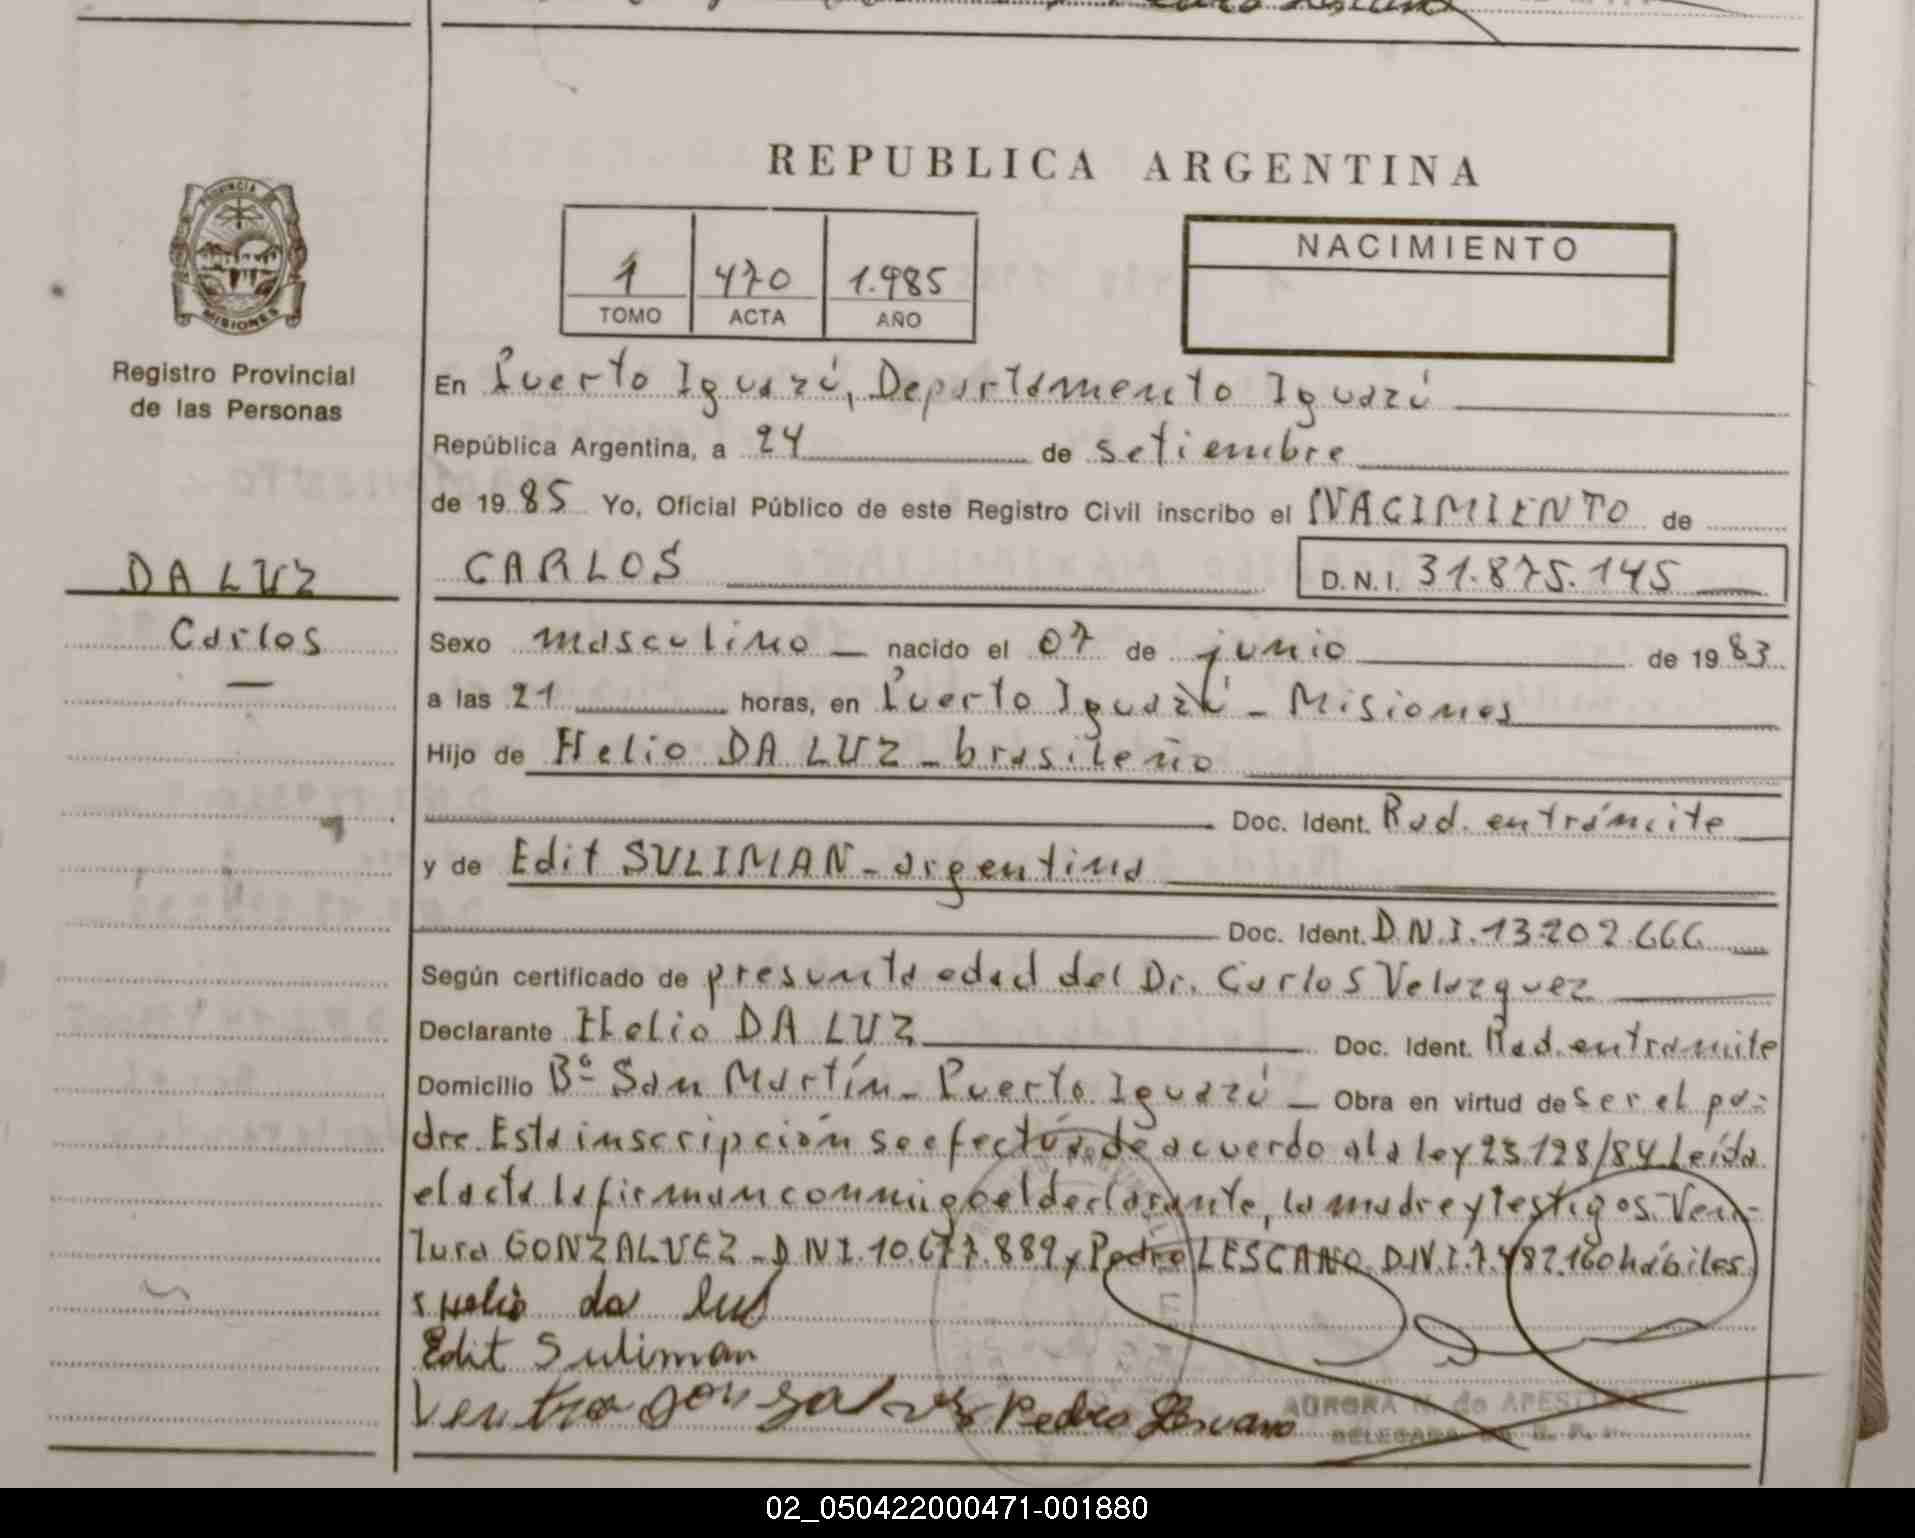 REPUBLICA ARGENTINA
PROVINCIA DE
MISIONES
Registro Provincial
de las Personas
1 470 1.985
TOMO ACTA AÑO
NACIMIENTO
En Puerto Iguazú, Departamento Iguazú
República Argentina, a 24 de setiembre
de 1985 Yo, Oficial Público de este Registro Civil inscribo el NACIMIENTO de
DA LUZ
Carlos
CARLOS D.N.I. 31.875.145
Sexo masculino nacido el 07 de junio de 1983
a las 21 horas, en Puerto Iguazú - Misiones
Hijo de Helio DA LUZ - brasileño
Doc. Ident. Rad. en trámite
y de Edit SULIMAN - argentina
Doc. Ident. D.N.I. 13.202.666
Según certificado de presunta edad del Dr. Carlos Velazquez
Declarante Helio DA LUZ Doc. Ident. Rad. en tramite
Domicilio Bº San Martín - Puerto Iguazú - Obra en virtud de ser el pa-
dre. Esta inscripción se efectúa de acuerdo a la ley 23.128/84. Leída
el acta la firman conmigo el declarante, la madre y testigos. Ven-
tura GONZALVEZ - D.N.I. 10.677.889 y Pedro LESCANO D.N.I. 7.482.160 hábiles.
Helio da luz
Edit Suliman
Ventura Gonzalvez Pedro Lescano
AURORA N. de
DELEGADA
02_050422000471-001880